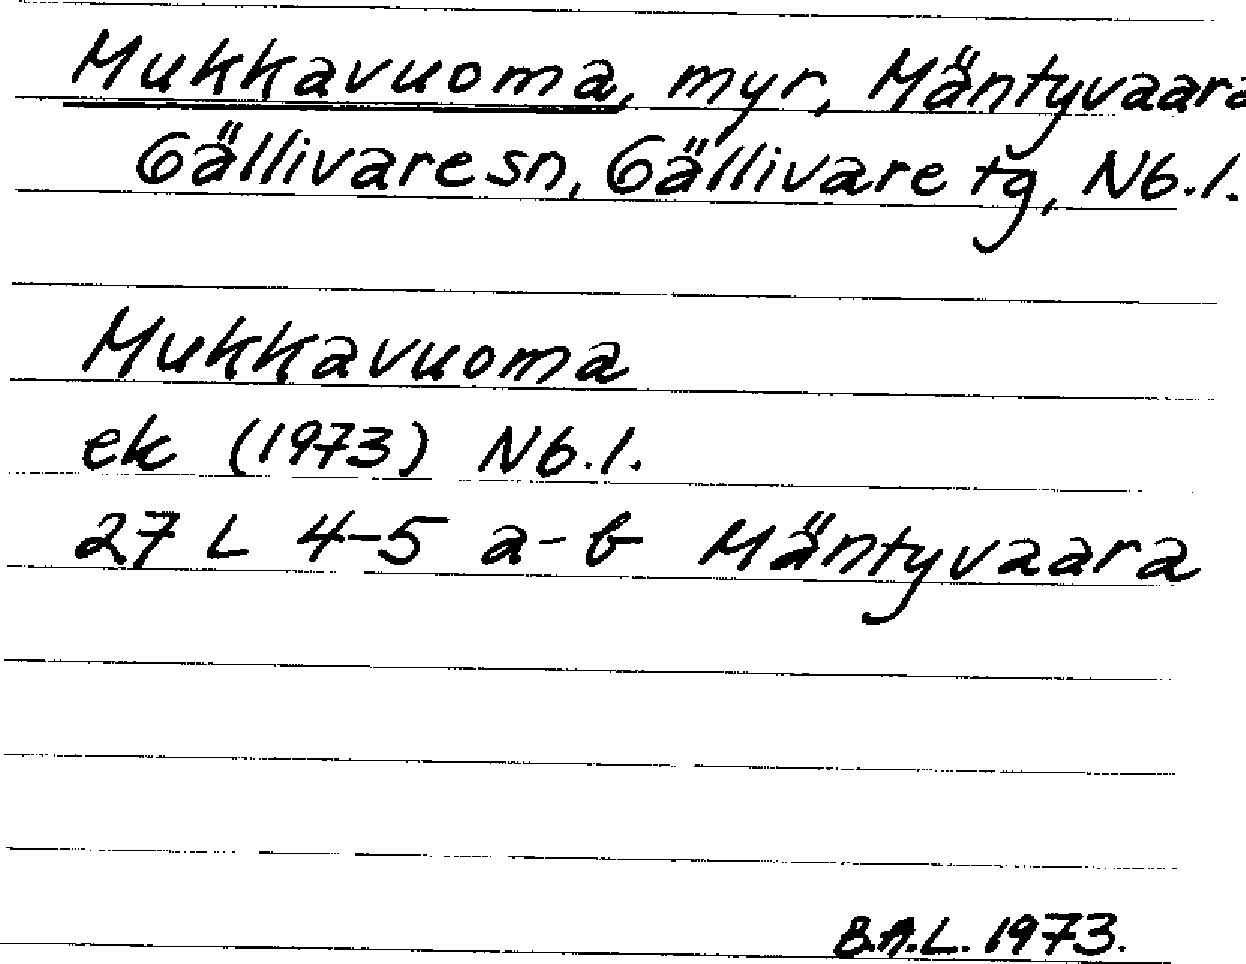 Mukkavuoma, myr, Mäntyvaara
Gällivare sn, Gällivare tg, Nb.l.
Mukkavuoma
ek (1973) Nb.l.
27 L 4-5 a-b Mäntyvaara
B.A.L. 1973.